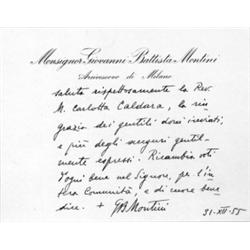 Monsignor Giovanni Battista Montini
Arcivescovo di Milano
saluta rispettosamente la Rev.
M. Carlotta Caldara, la rin
grazia dei gentili doni inviati,
e più degli auguri gentil-
mente espressi. Ricambia voti
d'ogni bene nel Signore, per l'in
tera Comunità, e di cuore bene
dice. + GBMontini
31-XII-55